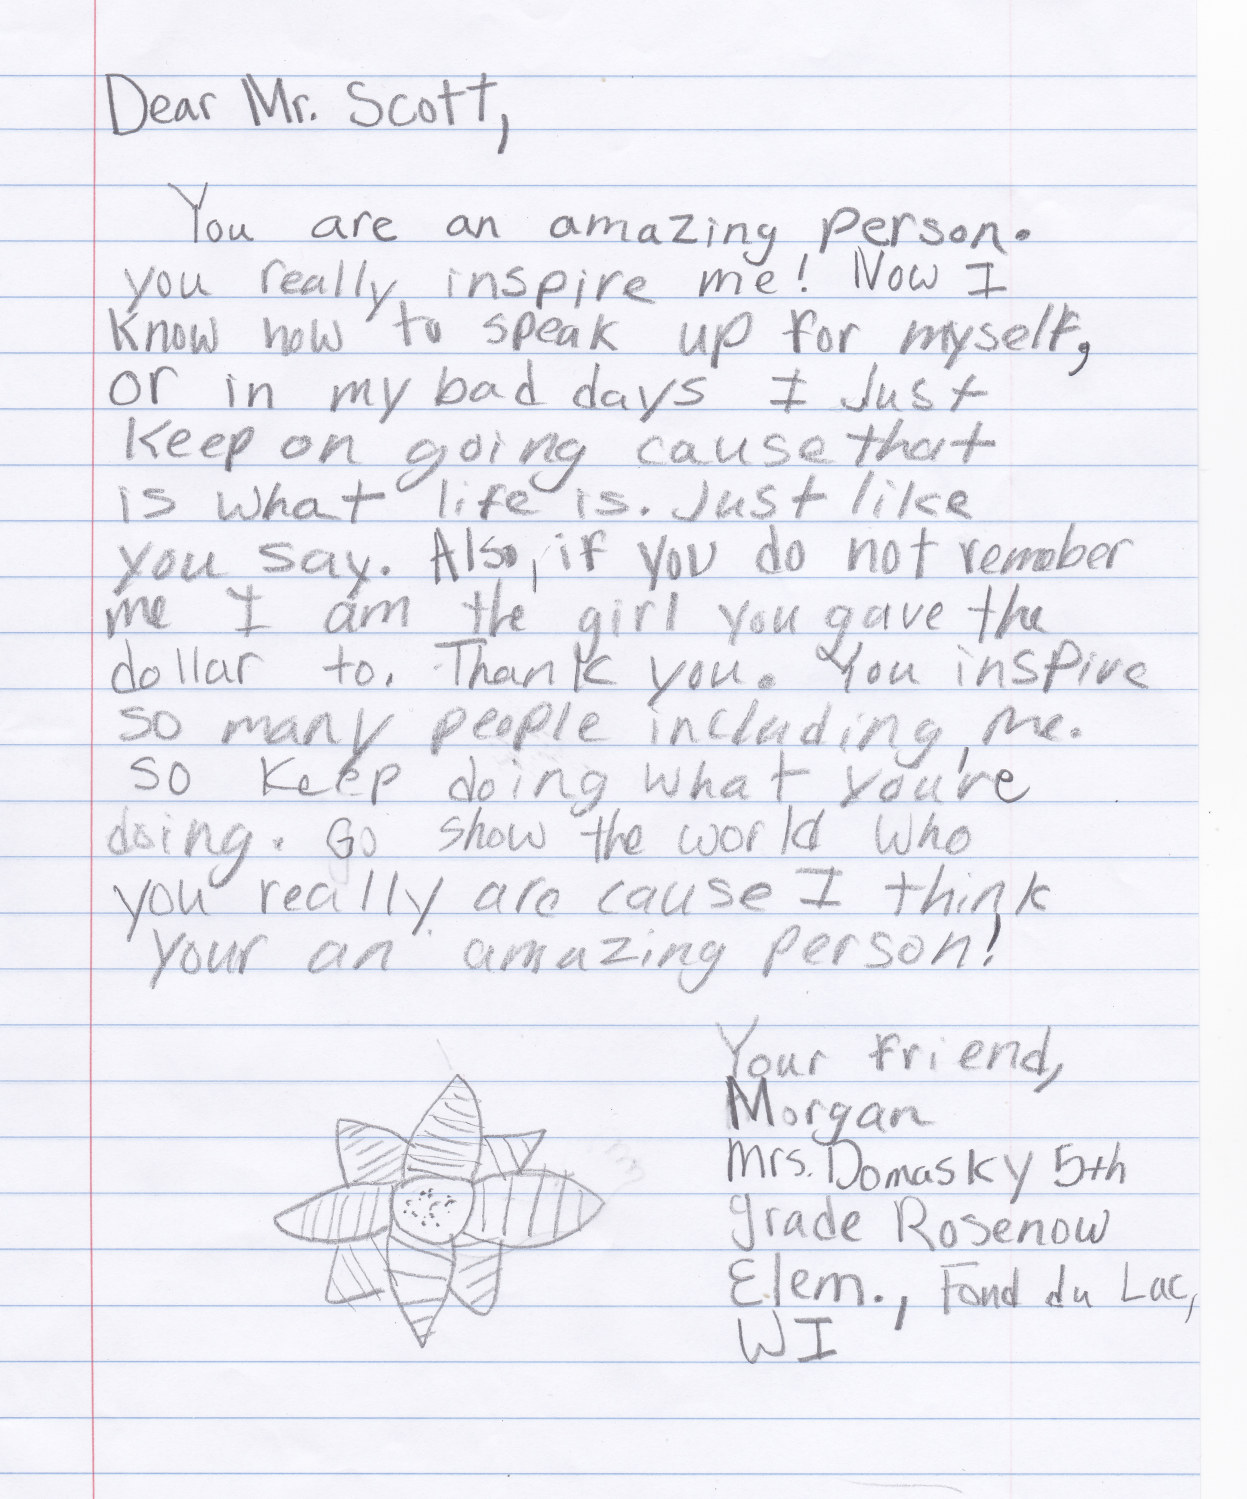 Dear Mr. Scott,
You are an amazing person.
you really inspire me! Now I
know how to speak up for myself,
or in my bad days I Just
keep on going cause that
is what life is. Just like
you say. Also, if you do not remember
me I am the girl you gave the
dollar to. Thank you. You inspire
so many people including, me.
so keep doing what you're
doing. Go show the world who
you really are cause I think
your an amazing person!
Your friend,
Morgan
Mrs. Domasky 5th
grade Rosenow
Elem., Fond du Lac,
WI